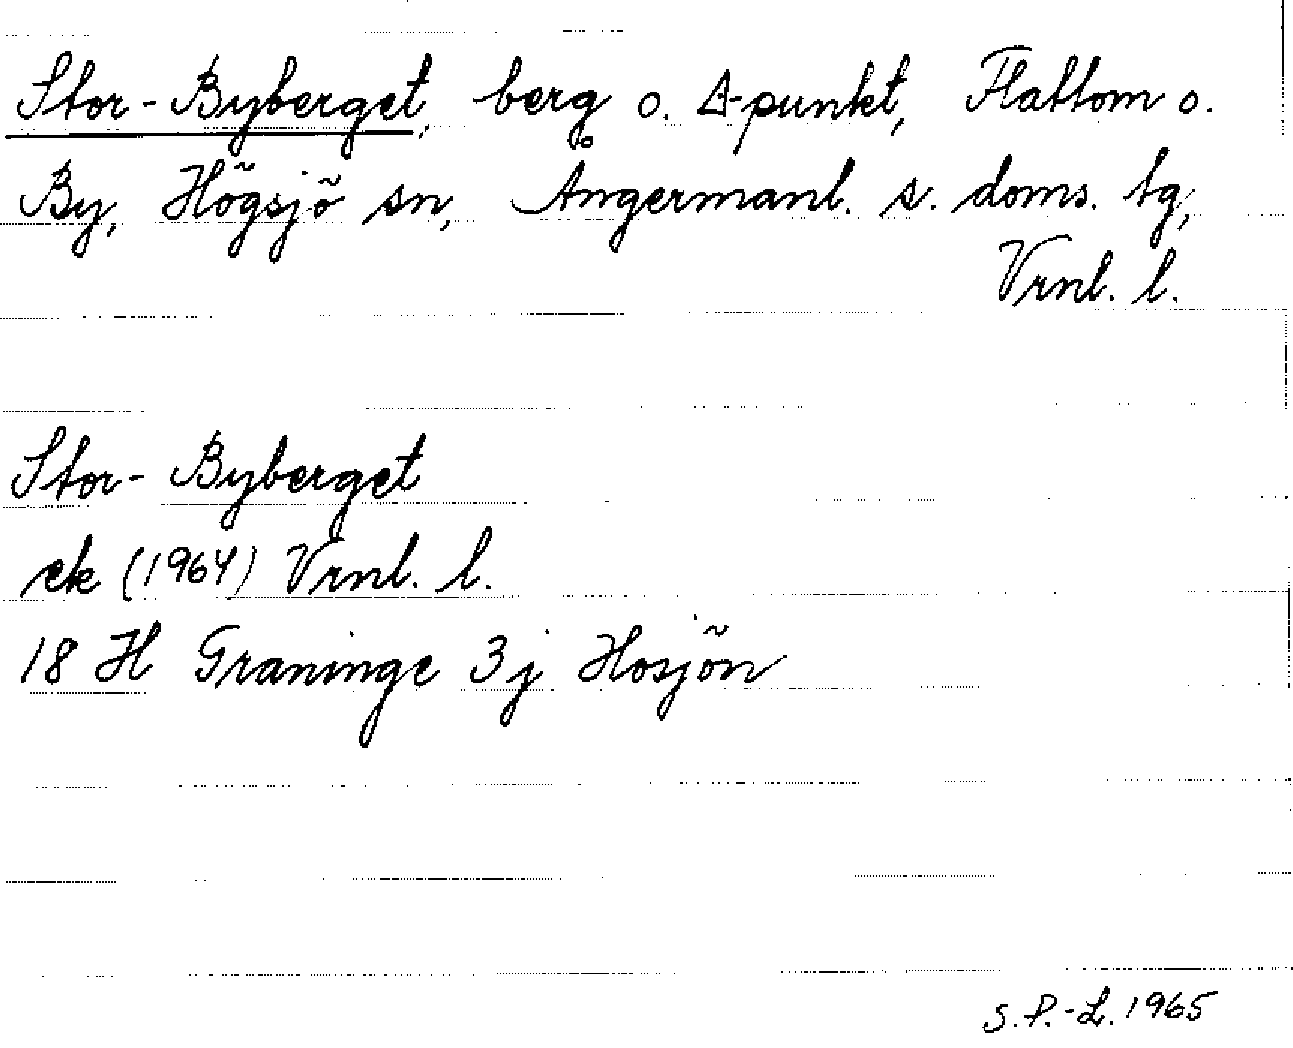 Stor-Byberget, berg o. Δ-punkt, Flattom o.
By, Högsjö sn, Ångermanl. s. doms. tg,
Vrnl. l.
Stor-Byberget
ek (1964) Vrnl. l.
18 H Graninge 3j Hosjön
S.P.-L. 1965